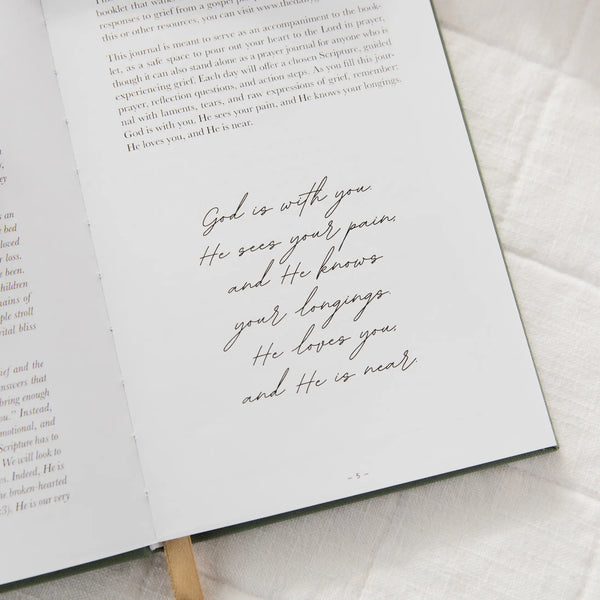 an
bed
loved
loss,
been.
children
mains of
ple stroll
vital bliss
ief and the
answers that
bring enough
ou." Instead,
motional, and
Scripture has to
We will look to
es. Indeed, He is
he broken-hearted
:3). He is our very
booklet that walk
responses to grief from a gospel
this or other resources, you can visit www.thedaily
This journal is meant to serve as an accompaniment to the book-
let, as a safe space to pour out your heart to the Lord in prayer,
though it can also stand alone as a prayer journal for anyone who is
experiencing grief. Each day will offer a chosen Scripture, guided
prayer, reflection questions, and action steps. As you fill this jour-
nal with laments, tears, and raw expressions of grief, remember:
God is with you. He sees your pain, and He knows your longings.
He loves you, and He is near.
God is with you.
He sees your pain,
and He knows
your longings.
He loves you,
and He is near.
– 5 –